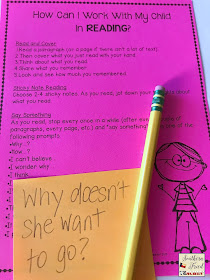 How Can I Work With My Child
in READING?
Read and Cover
1. Read a paragraph (or a page if there isn't a lot of text).
2. Then cover what you just read with your hand.
3. Think about what you read.
4. Share what you remember.
5. Look and see how much you remembered.
Sticky Note Reading
Choose 2-4 sticky notes. As you read, jot down your
what you read.
Say Something
As you read, stop every once in a while (after every
paragraphs, every page, etc.) and "say something"
following prompts
Why...?
How...?
I can't believe
I wonder why
I think
Why doesn't
she want
to go?